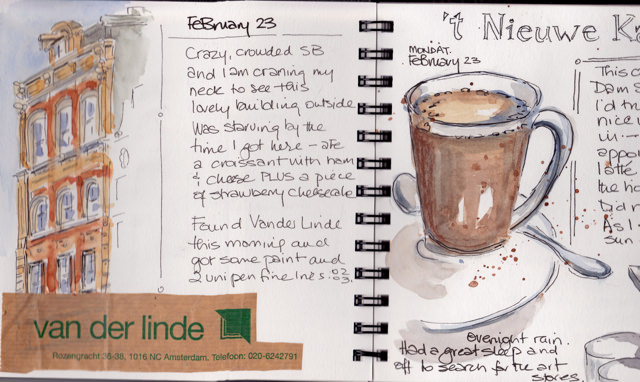 February 23
Crazy, crowded SB
and I am craning my
neck to see this
lovely building outside
Was starving by the
time I got here - ate
a croissant with ham
& cheese PLUS a piece
of strawberry cheesecake
Found Vander Linde
this morning and
got some paint and
2 uni pen fine lines .02
.03.
van der linde
Rozengracht 36-38, 1016 NC Amsterdam. Telefoon: 020-6242791
't Nieuwe Ka
MONDAY.
February 23
This c
Dam S
I'd tr
nice
in -
appo
latte
the ho
Did n
As I
sun
overnight rain.
Had a great sleep and
off to search for the art
stores